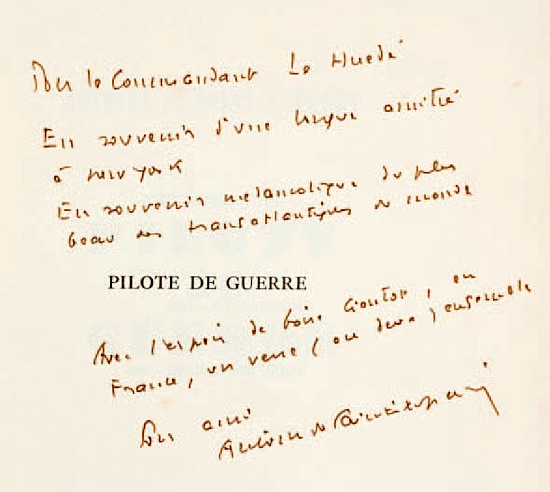 Pour le Commandant Le Huédé
En souvenir d'une longue amitié
à New York
En souvenir mélancolique du plus
beau des transatlantiques du monde
PILOTE DE GUERRE
Avec l'espoir de boire bientôt, en
France, un verre (ou deux) ensemble
Son ami
Antoine de Saint Exupéry